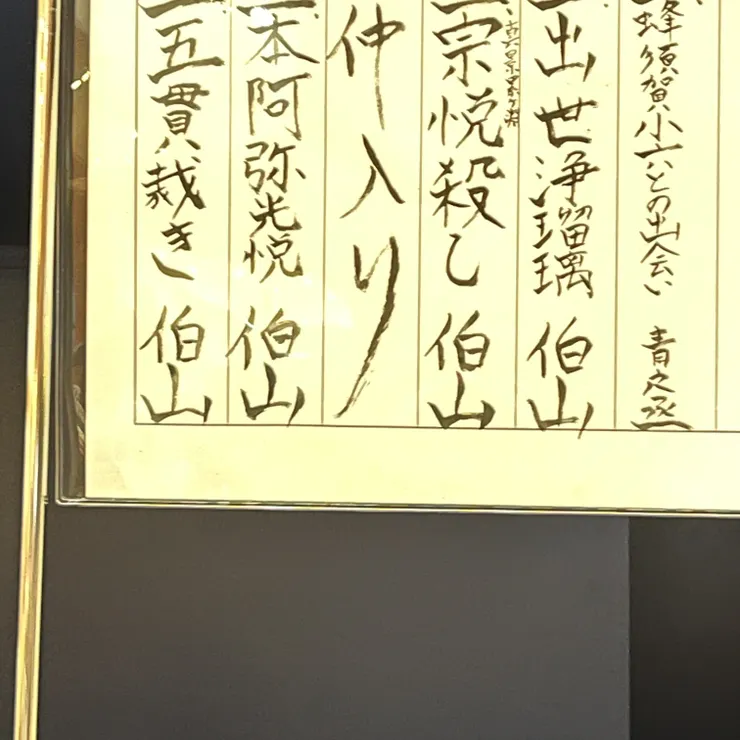 一蜂須賀小六との出会い 青之丞
一出世浄瑠璃 伯山
真景累ヶ淵
一宗悦殺し 伯山
仲入り
一本阿弥光悦 伯山
一五貫裁き 伯山